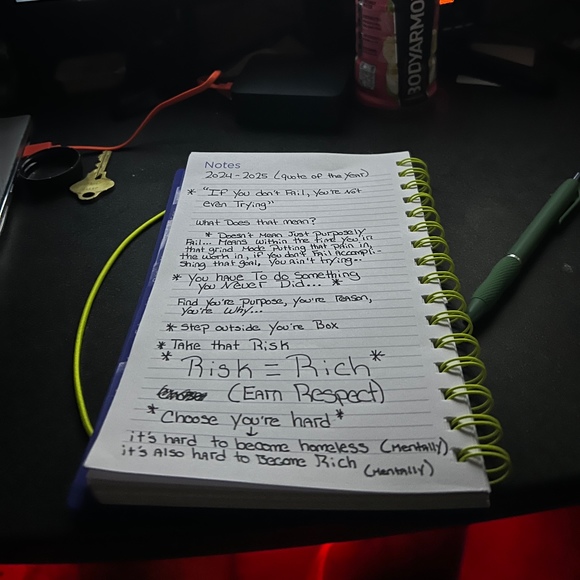 BODYARMO
Notes
2024-2025 (quote of the Year)
* "If you don't Fail, you're not
even Trying"
What Does that mean?
* Doesn't Mean Just Purposely
Fail... Means within the time you in
that grind mode Putting that Pain in,
the work in, if you don't Fail Accompli-
shing that goal, you Ain't trying..
* You have To do Something
you Never Did... *
Find you're Purpose, you're Reason,
you're Why...
* Step outside you're Box
* Take that Risk
* Risk = Rich *
(Earn Respect)
* Choose you're hard *
it's hard to become homeless (Mentally)
it's Also hard to Become Rich (Mentally)